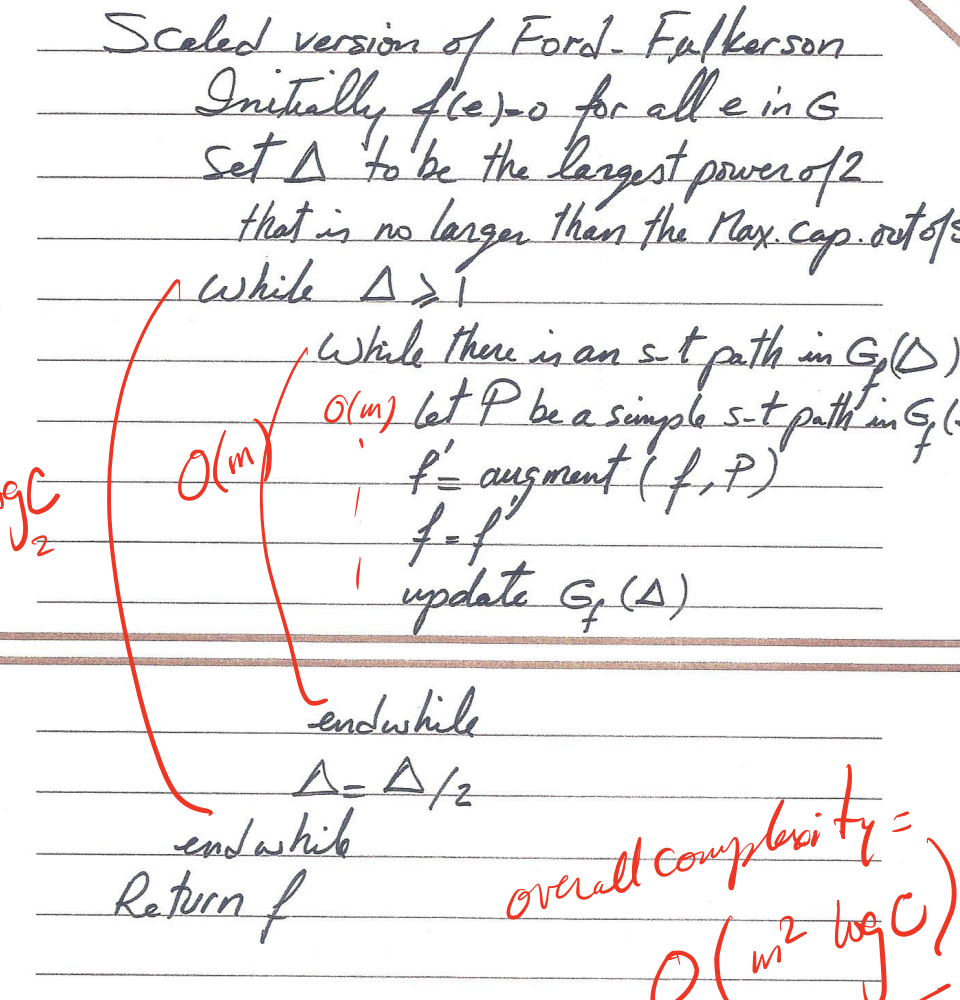 Scaled version of Ford-Fulkerson
Initially f(e)=0 for all e in G
Set Δ to be the largest power of 2
that is no larger than the Max. cap. out of s
While Δ ≥ 1
While there is an s-t path in G_f(Δ)
O(m) let P be a simple s-t path in G_f(
O(m)
f' = augment (f, P)
log_2 C
f = f'
update G_f(Δ)
endwhile
Δ = Δ/2
endwhile
overall complexity =
Return f
O(m² log C)